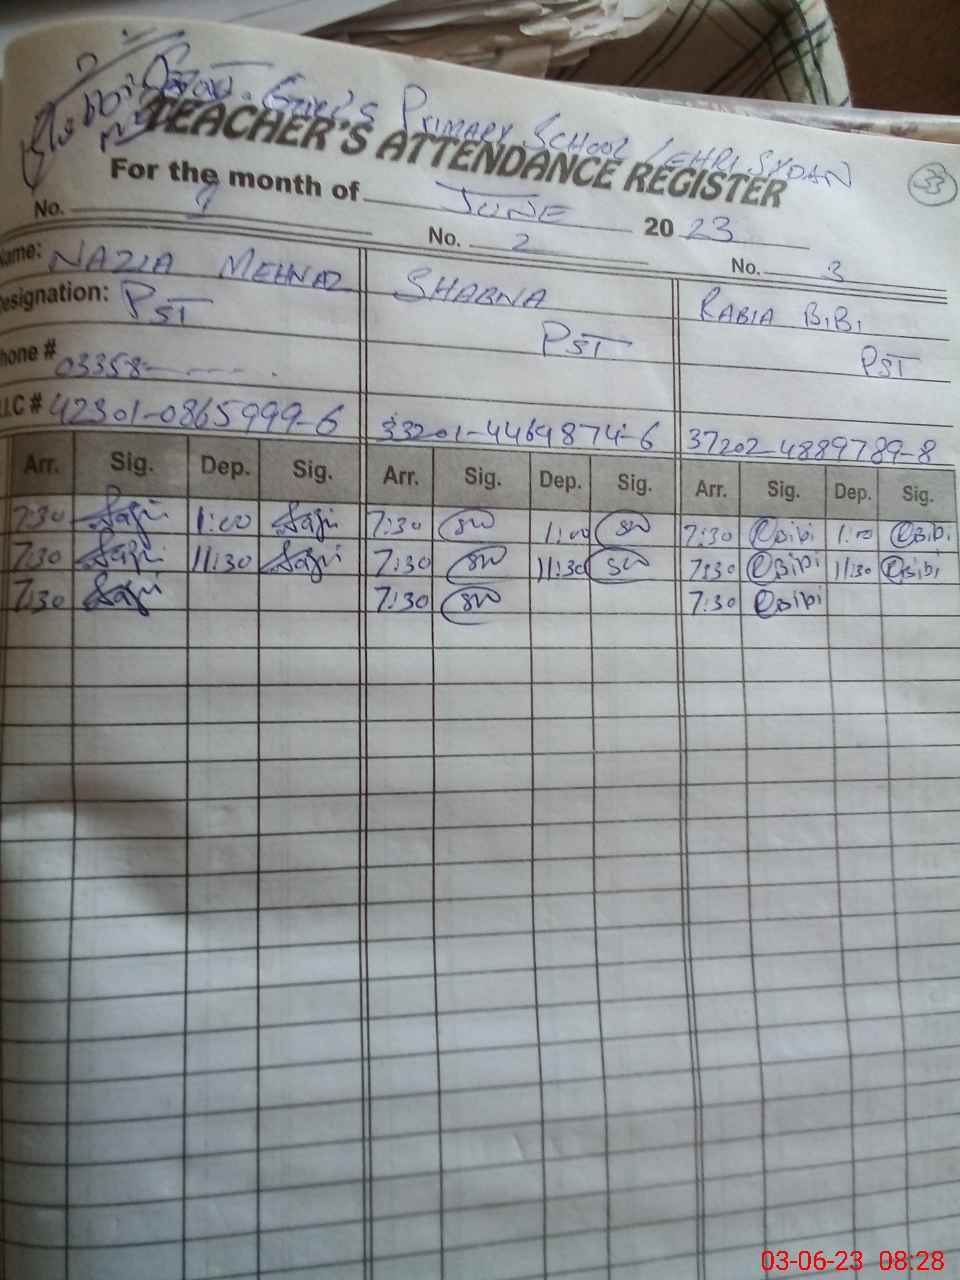 Govt. Girl's Primary School LEHRI SYDAN
TEACHER'S ATTENDANCE REGISTER
33
For the month of JUNE 2023
No. 1 No. 2 No. 3
Name: NAZIA MEHNAZ SHABNA RABIA BIBI
Designation: PST PST PST
Phone # 03358
NIC # 42301-0865999-6 33201-4469874-6 37202-4889789-8
Arr. Sig. Dep. Sig. Arr. Sig. Dep. Sig. Arr. Sig. Dep. Sig.
7:30 1:00 7:30 SW 1:00 SW 7:30 RBiBi 1:00 RBiBi
7:30 11:30 7:30 SW 11:30 SW 7:30 RBiBi 11:30 RBiBi
7:30 7:30 SW 7:30 RBiBi
03-06-23 08:28